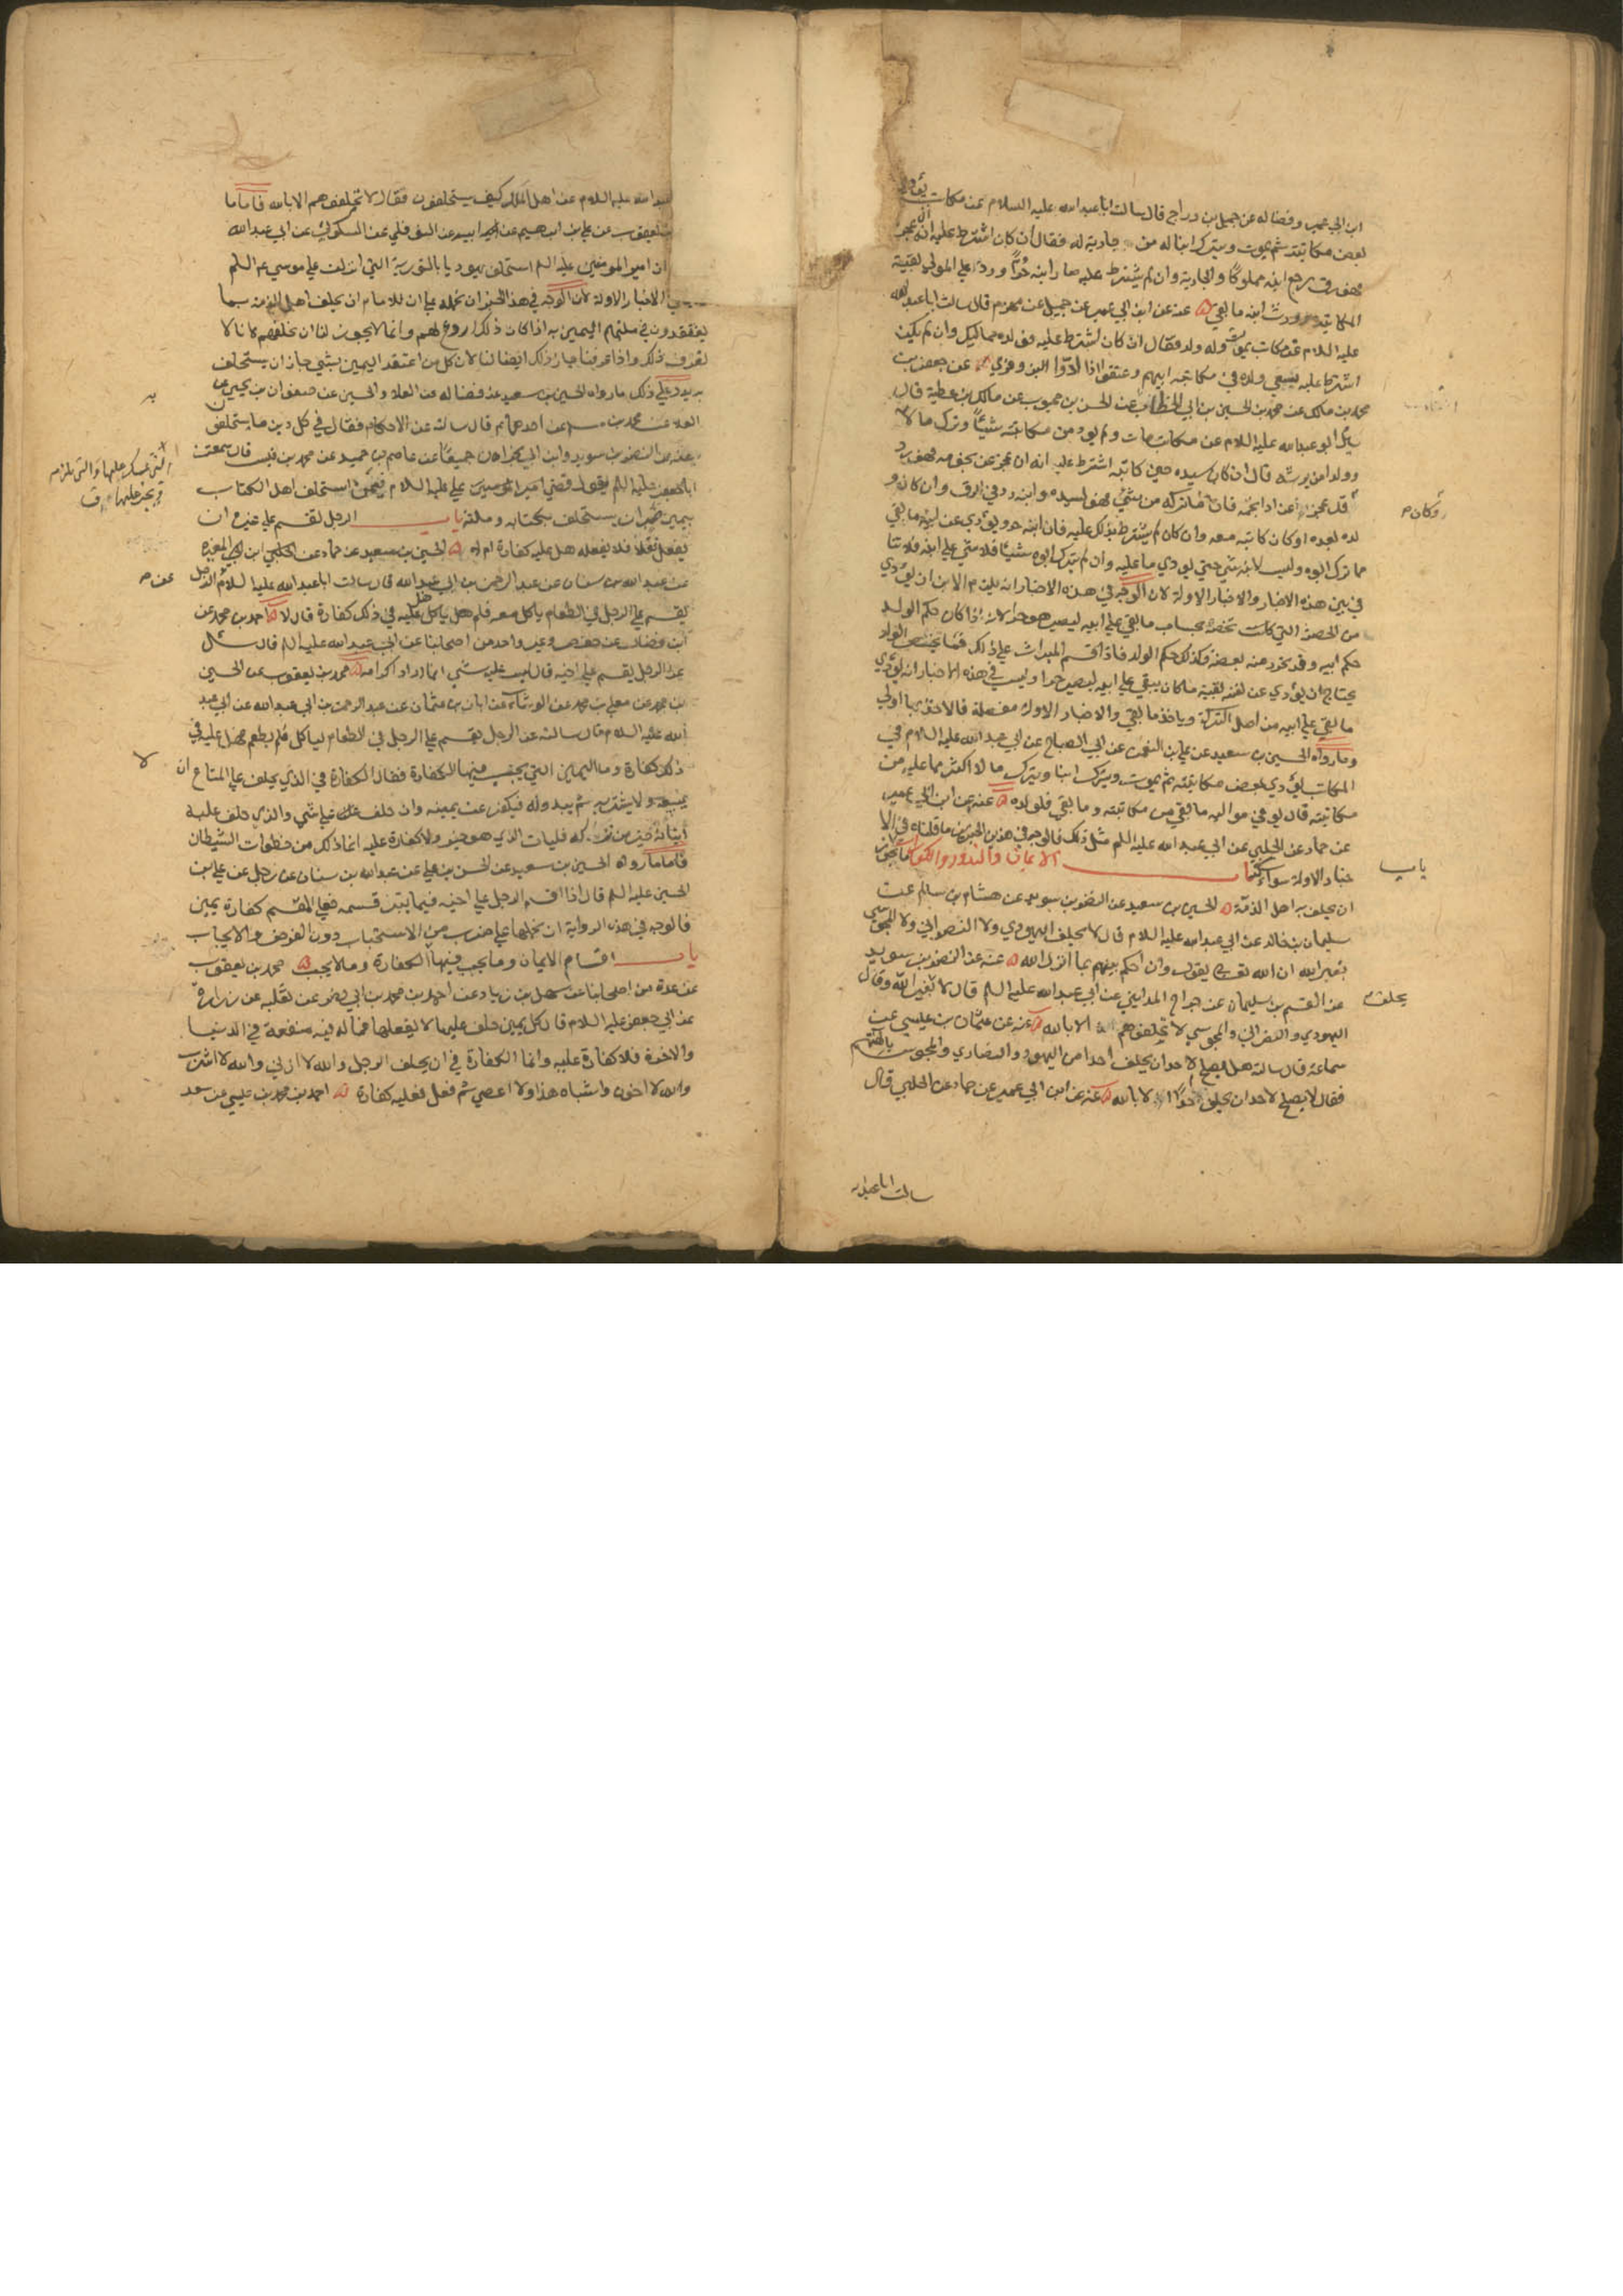 ابن ابي عمير وفضالة عن جميل بن دراج قال سالت ابا عبدالله عليه السلام عن مكاتب يؤدي
بعض مكاتبته ثم يموت ويترك ابنا له من جارية له فقال ان كان اشترط عليه انه ان عجز
فهو رق رجع ابنه مملوكا والجارية وان لم يشترط عليه صار ابنه حرا ورد علي المولي بقية
المكاتبة وورث ابنه ما بقي عنه عن ابن ابي عمير عن جميل عن مهزم قال سالت ابا عبدالله
عليه السلام عن مكاتب يموت وله ولد فقال ان كان اشترط عليه فولده مماليك وان لم يكن
اشترط عليه يسعي ولده في مكاتبة ابيهم وعتقوا اذا ادوا البزوفري عن جعفر بن
محمد بن مالك عن محمد بن الحسين بن ابي الخطاب عن الحسن بن محبوب عن مالك بن عطية قال
سئل ابو عبدالله عليه السلام عن مكاتب مات ولم يود من مكاتبته شيئا وترك مالا
وولدا من يرثه قال ان كان سيده حين كاتبه اشترط عليه انه ان عجز عن نجومه فهو رد
قد عجز عن اداء نجمه فان ما ترك من شيء فهو لسيده وابنه رد في الرق وان كان و
لده بعده او كان كاتبه معه وان كان لم يشترط ذلك عليه فان ابنه حر ويؤدي عن ابيه ما بقي
مما ترك ابوه وليس لابنه شي حتي يودي ما عليه وان لم يترك ابوه شيئا فلا شي علي ابنه فلا تنا
في بين هذه الاخبار والاخبار الاولة لان الوجه في هذه الاخبار انه يلزم الابن ان يؤدي
من الحصة التي كانت تخصه بحساب ما بقي علي ابيه ليصير هو حرا لانه اذا كان حكم الولد
حكم ابيه وقد تحرر منه بعضه وكذلك حكم الولد فاذا قسم الميراث علي ذلك فما يخص الولد
يحتاج ان يؤدي عن نفسه بقية ما كان يبقي علي ابيه ليصير حرا وليس في هذه الاخبار انه يؤدي
ما بقي علي ابيه من اصل التركة وياخذ ما بقي والاخبار الاولة مفصلة فالاخذ بها اولي
وما رواه الحسين بن سعيد عن علي بن النعمن عن ابي الصباح عن ابي عبد الله عليه السلام في
المكاتب يؤدي بعض مكاتبته ثم يموت ويترك ابنا ويترك مالا اكثر مما عليه من
مكاتبته قال يوفي مواليه ما بقي من مكاتبته وما بقي فلولده عنه عن ابن ابي عمير
عن حماد عن الحلبي عن ابي عبد الله عليه السلم مثل ذلك فالوجه في هذين الخبرين ما قلناه في الا
خبار الاولة سواء كتاب الايمان والنذور والكفارات ما يجوز
باب
ان يحلف به اهل الذمة الحسين بن سعيد عن النضر بن سويد عن هشام بن سالم عن
سليمان بن خالد عن ابي عبدالله عليه السلام قال لا يحلف اليهودي ولا النصراني ولا المجوسي
بغير الله ان الله تعالى يقول وان احكم بينهم بما انزل الله عنه عن النضر بن سويد
عن القسم بن سليمان عن جراح المدايني عن ابي عبد الله عليه السلم قال لا يحلف بغير الله وقال
اليهودي والنصراني والمجوسي لا تحلفوهم الا بالله عنه عن عثمان بن عيسي عن
سماعة قال سالته هل يصلح لاحد ان يحلف احدا من اليهود والنصاري والمجوس بالهتهم
فقال لا يصلح لاحد ان يحلف احدا الا بالله عنه عن ابن ابي عمير عن حماد عن الحلبي قال
سالت ابا عبدالله
عبدالله عليه السلام عن اهل الملل كيف يستحلفون فقال لا تحلفوهم الا بالله فاما ما
يعقوب عن علي بن ابراهيم عن ابيه عن النوفلي عن السكوني عن ابي عبدالله
ان امير المومنين عليه السلم استحلف يهوديا بالتورية التي انزلت علي موسي عم السلم
الاخبار الاولة لان الوجه في هذا الخبر ان نحمله علي ان للامام ان يحلف اهل الذمة بما
يعتقدون في ملتهم اليمين به اذا كان ذلك اروع لهم وانما لا يجوز لنا ان نحلفهم لانا لا
نعرف ذلك واذا عرفنا جاز ذلك ايضا لنا لان كل من اعتقد اليمين بشي جاز ان يستحلف
به يدل علي ذلك ما رواه الحسين بن سعيد عن فضالة عن العلا والحسين عن صفوان بن يحيي عن
العلا عن محمد بن مسلم عن احدهما عم قال سالته عن الاحكام فقال في كل دين ما يستحلفون
عنه عن النضر بن سويد وابن ابي نجران جميعا عن عاصم بن حميد عن محمد بن قيس قال سمعت
ابا جعفر عليه السلم يقول قضي امير المومنين علي عليه السلام فيمن استحلف اهل الكتاب
بيمين صبر ان يستحلف بكتابه وملته باب الرجل يقسم علي غيره ان
يفعل فعلا فلا يفعله هل عليه كفارة ام لا الحسين بن سعيد عن حماد عن الحلبي ابن المغيرة
عن عبد الله بن سنان عن عبد الرحمن بن ابي عبد الله قال سالت ابا عبدالله عليه السلام الرجل
يقسم علي الرجل في الطعام ياكل معه فلم ياكل هل عليه في ذلك كفارة قال لا احمد بن محمد عن
ابن فضال عن حفص وغير واحد من اصحابنا عن ابي عبدالله عليه السلم قال سئل
عن الرجل يقسم علي اخيه قال ليس عليه شي انما اراد اكرامه محمد بن يعقوب عن الحسين
بن محمد عن معلي بن محمد عن الوشاء عن ابان بن عثمان عن عبد الرحمن بن ابي عبد الله عن ابي عبد
الله عليه السلام قال سالته عن الرجل يقسم علي الرجل في الطعام لياكل فلم يطعم فهل عليه في
ذلك كفارة وما اليمين التي يجب فيها الكفارة فقال الكفارة في الذي يحلف علي المتاع ان
لا
يبيعه ولا يشتريه ثم يبدو له فيكفر عن يمينه وان حلف علي شي والذي حلف عليه
اتيانه خير من تركه فليات الذي هو خير ولا كفارة عليه انما ذلك من خطوات الشيطان
فاما ما رواه الحسين بن سعيد عن الحسن بن علي عن عبدالله بن سنان عن رجل عن علي بن
الحسين عليه السلم قال اذا اقسم الرجل علي اخيه فيما يبر قسمه فعلي المقسم كفارة يمين
فالوجه في هذه الرواية ان نحملها علي ضرب من الاستحباب دون الفرض والايجاب
باب اقسام الايمان وما يجب فيها الكفارة وما لا يجب محمد بن يعقوب
عن عدة من اصحابنا عن سهل بن زياد عن احمد بن محمد بن ابي نصر عن ثعلبة عن زرارة
عن ابي جعفر عليه السلام قال كل يمين حلف عليها لا يفعلها مما له فيه منفعة في الدنيا
والاخرة فلا كفارة عليه وانما الكفارة في ان يحلف الرجل والله لا ازني والله لا اشرب
والله لا اخون واشباه هذا ولا اعصي ثم فعل فعليه كفارة احمد بن محمد بن عيسي عن سعد